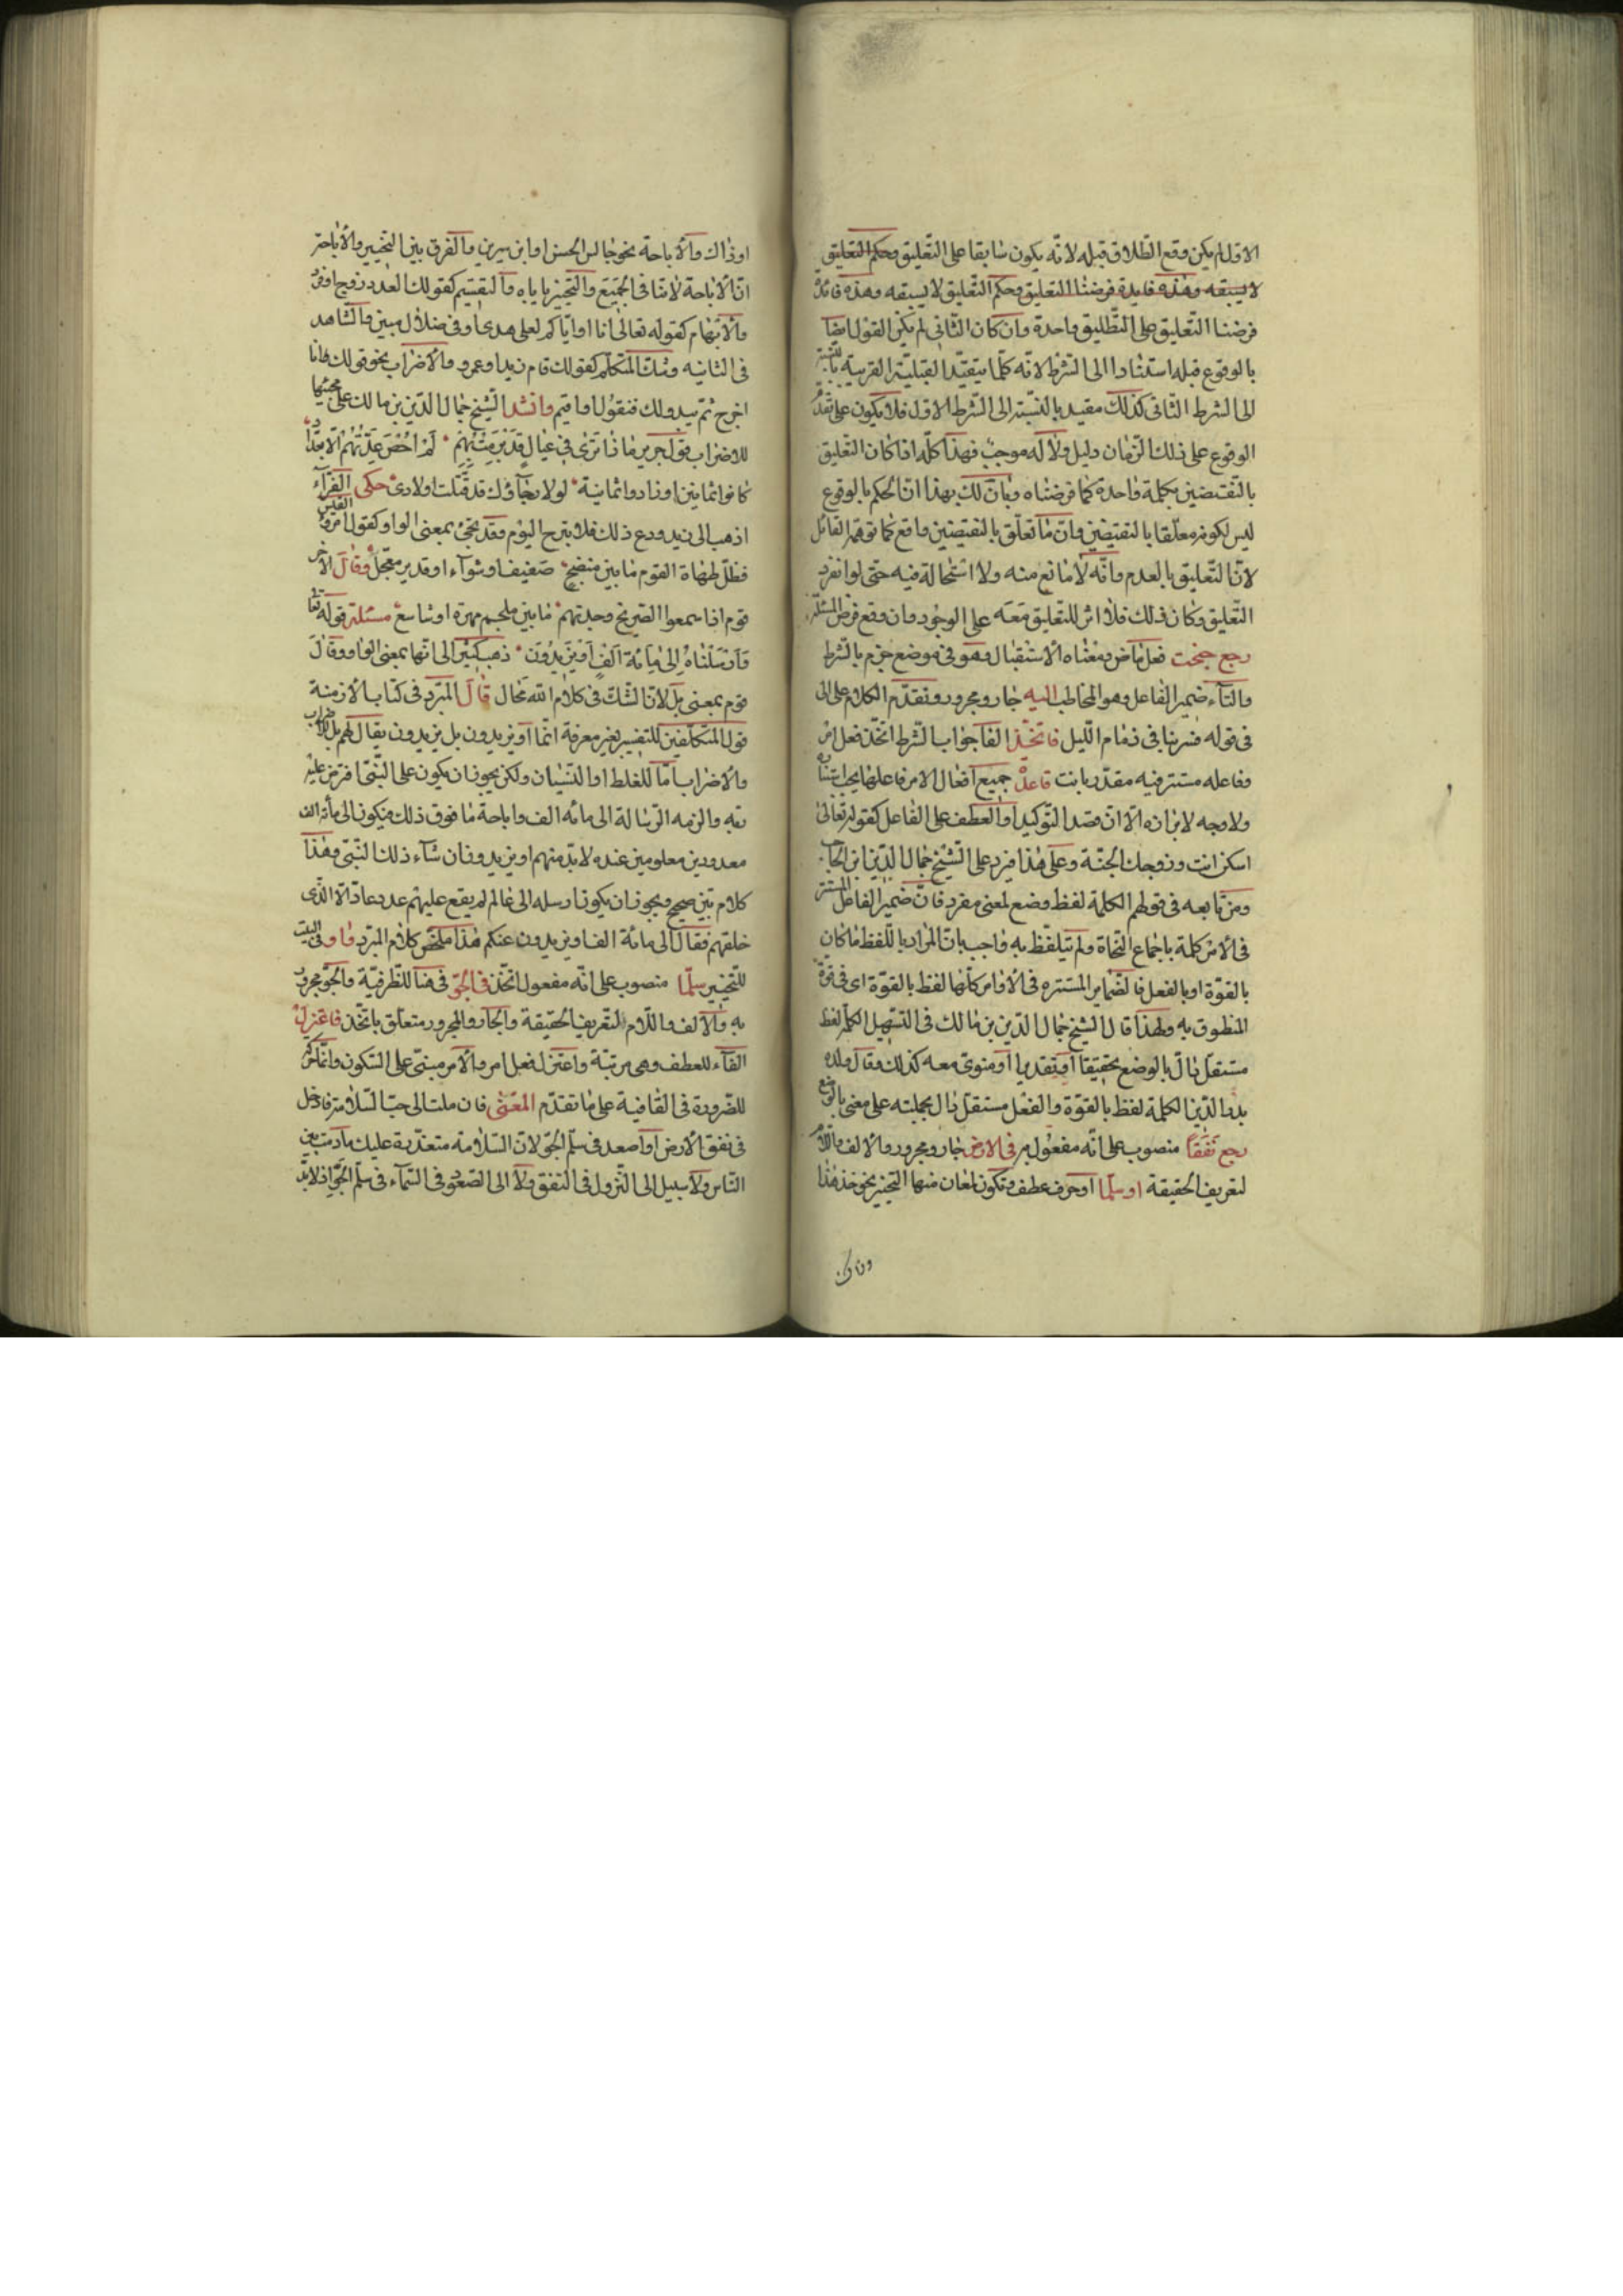 الاول لم يكن وقع الطلاق قبله لانه يكون سابقا على التعليق وحكم التعليق
لا يسبقه وهذه فايدة فرضنا التعليق وحكم التعليق لا يسبقه وهذه فائدة
فرضنا التعليق على التطليق واحدة وان كان الثانى لم يكن القول ايضا
بالوقوع قبله استنادا الى الشرط لانه كلما يتقيد القبلية القريبة بالنسبة
الى الشرط الثانى كذلك مقيد بالنسبة الى الشرط الاول فلا يكون على تقدم
الوقوع على ذلك الزمان دليل ولا له موجب فهذا كله اذا كان التعليق
بالنقيضين بكلمة واحدة كما فرضناه وبان لك بهذا ان الحكم بالوقوع
ليس لكونه معلقا بالنقيضين وان ما تعلق بالنقيضين واقع كما توهمه القائل
لان التعليق بالعدم وانه لا مانع منه ولا استحالة فيه حتى لو انفرد
التعليق وكان ذلك فلا اثر للتعليق معه على الوجود وان وقع فرض المسئلة
رجع جنحت فعل ماض ومعناه الاستقبال وهو فى موضع جزم بالشرط
والتاء ضمير الفاعل وهو المخاطب اليه جار ومجرور وتقدم الكلام على الى
فى قوله فسر بنا فى ذمام الليل فاتخذ الفا جواب الشرط اتخذ فعل امر
وفاعله مستتر فيه مقدر بانت قاعدة جميع افعال الامر فاعلها يجب استتاره
ولا وجه لابرازه الا ان قصد التوكيد او العطف على الفاعل كقوله تعالى
اسكن انت وزوجك الجنة وعلى هذا فيرد على الشيخ جمال الدين ابن الحاجب
ومن تابعه فى قولهم الكلمة لفظ وضع لمعنى مفرد فان ضمير الفاعل المستتر
فى الامر كلمة باجماع النحاة ولم يتلفظ به واجيب بان المراد باللفظ ما كان
بالقوة او بالفعل فالضماير المستتره فى الاوامر كلها لفظ بالقوة اى فى قوة
المنطوق به ولهذا قال الشيخ جمال الدين بن مالك فى التسهيل الكلمة لفظ
مستقل دال بالوضع تحقيقا او تقديرا او منوى معه كذلك وقال ولده
بدر الدين الكلمة لفظ بالقوة والفعل مستقل دال بجملته على معنى بالوضع
رجع نفقا منصوب على انه مفعول به فى الارض جار ومجرور والالف واللام
لتعريف الحقيقة او سلما او حرف عطف وتكون لمعان منها التخيير نحو خذ هذا
او ذاك والاباحة نحو جالس الحسن او ابن سيرين والفرق بين التخيير والاباحة
ان الاباحة لا تنافى الجميع والتخيير ياباه والتقسيم كقولك العدد زوج او فرد
والابهام كقوله تعالى انا او اياكم لعلى هدى او فى ضلال مبين والشاهد
فى الثانيه وشك المتكلم كقولك قام زيد او عمرو والاضراب نحو قولك فانا
اخرج ثم يبدو لك فتقول او اقيم وانشد الشيخ جمال الدين بن مالك على مجيئها
للاضراب قول جرير ماذا ترى فى عيال قد برمت بهم لم احص عدتهم الا بعداد
كانوا ثمانين او زادوا ثمانية لولا رجاؤك قد قتلت اولادى حكى الفراء
اذهب الى زيد او دع ذلك فلا تبرح اليوم وقد تجئ بمعنى الواو كقول امرئ القيس
فظل طهاة القوم ما بين منضج صفيف او شواء او قدير معجل وقال الاخر
قوم اذا سمعوا الصريخ وجدتهم ما بين ملجم مهره او سافع مسئلة قوله تعا
وارسلناه الى مائة الف او يزيدون ذهب كثير الى انها بمعنى الواو وقال
قوم بمعنى بل لان الشك فى كلام الله محال قال المبرد فى كتاب الازمنة
قول المتكلفين للتفسير بغير معرفة انما او يزيدون بل يزيدون يقال لهم بل للاضراب
والاضراب اما للغلط او النسيان ولكن يجوز ان يكون على النبى افترض عليه
ربه والزمه الرسالة الى مائه الف واباحة ما فوق ذلك فيكون الى مائة الف
معدودين معلومين عنده لا بد منهم او يزيدون ان شاء ذلك النبى وهذا
كلام بين صحيح ويجوز ان يكون ارسله الى عالم لم يقع عليهم عدد عاد الا الذى
خلقهم فقال الى مائة الف او يزيدون عندكم هذا ملخص كلام المبرد واو فى البيت
للتخيير سلما منصوب على انه مفعول اتخذ فى الجو فى هنا للظرفية والجو مجرور
به والالف واللام لتعريف الحقيقة والجار والمجرور متعلق باتخذ فاعتزل
الفاء للعطف وهى مرتبة واعتزل فعل امر والامر مبنى على السكون وانما حرك
للضرورة فى القافية على ما تقدم المعنى فان ملت الى حب السلامة فادخل
فى نفق الارض او اصعد فى سلم الجو لان السلامة متعذرة عليك ما دمت بين
الناس ولا سبيل الى النزول فى النفق ولا الى الصعود فى السماء فى سلم الجو اذ لا بد